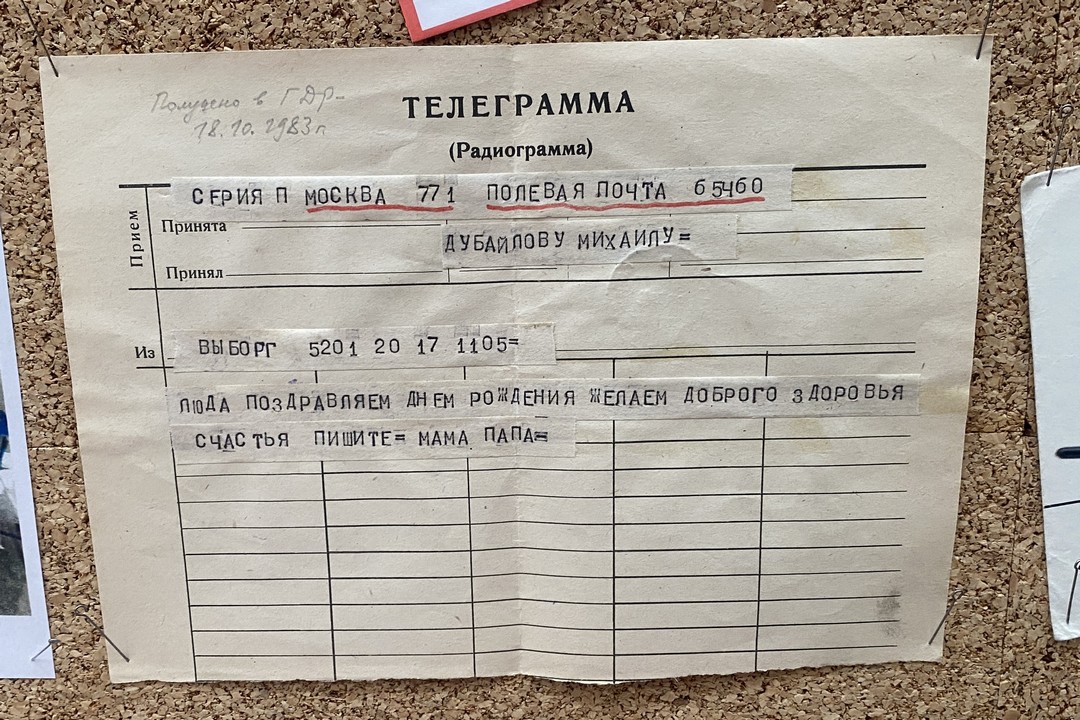 Получено в ГДР-
18.10.1983г
ТЕЛЕГРАММА
(Радиограмма)
Прием
СЕРИЯ П МОСКВА 771 ПОЛЕВАЯ ПОЧТА 65460
Принята
ДУБАЙЛОВУ МИХАИЛУ=
Принял
Из
ВЫБОРГ 5201 20 17 1105=
ЛЮДА ПОЗДРАВЛЯЕМ ДНЕМ РОЖДЕНИЯ ЖЕЛАЕМ ДОБРОГО ЗДОРОВЬЯ
СЧАСТЬЯ ПИШИТЕ= МАМА ПАПА=